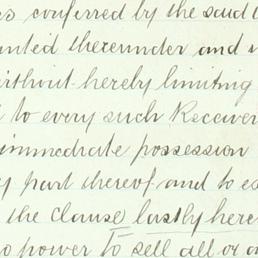 conferred by the said
thereunder and
without hereby limiting
to every such Receiver
immediate possession
part thereof and to
the Clause lastly
power to sell all or